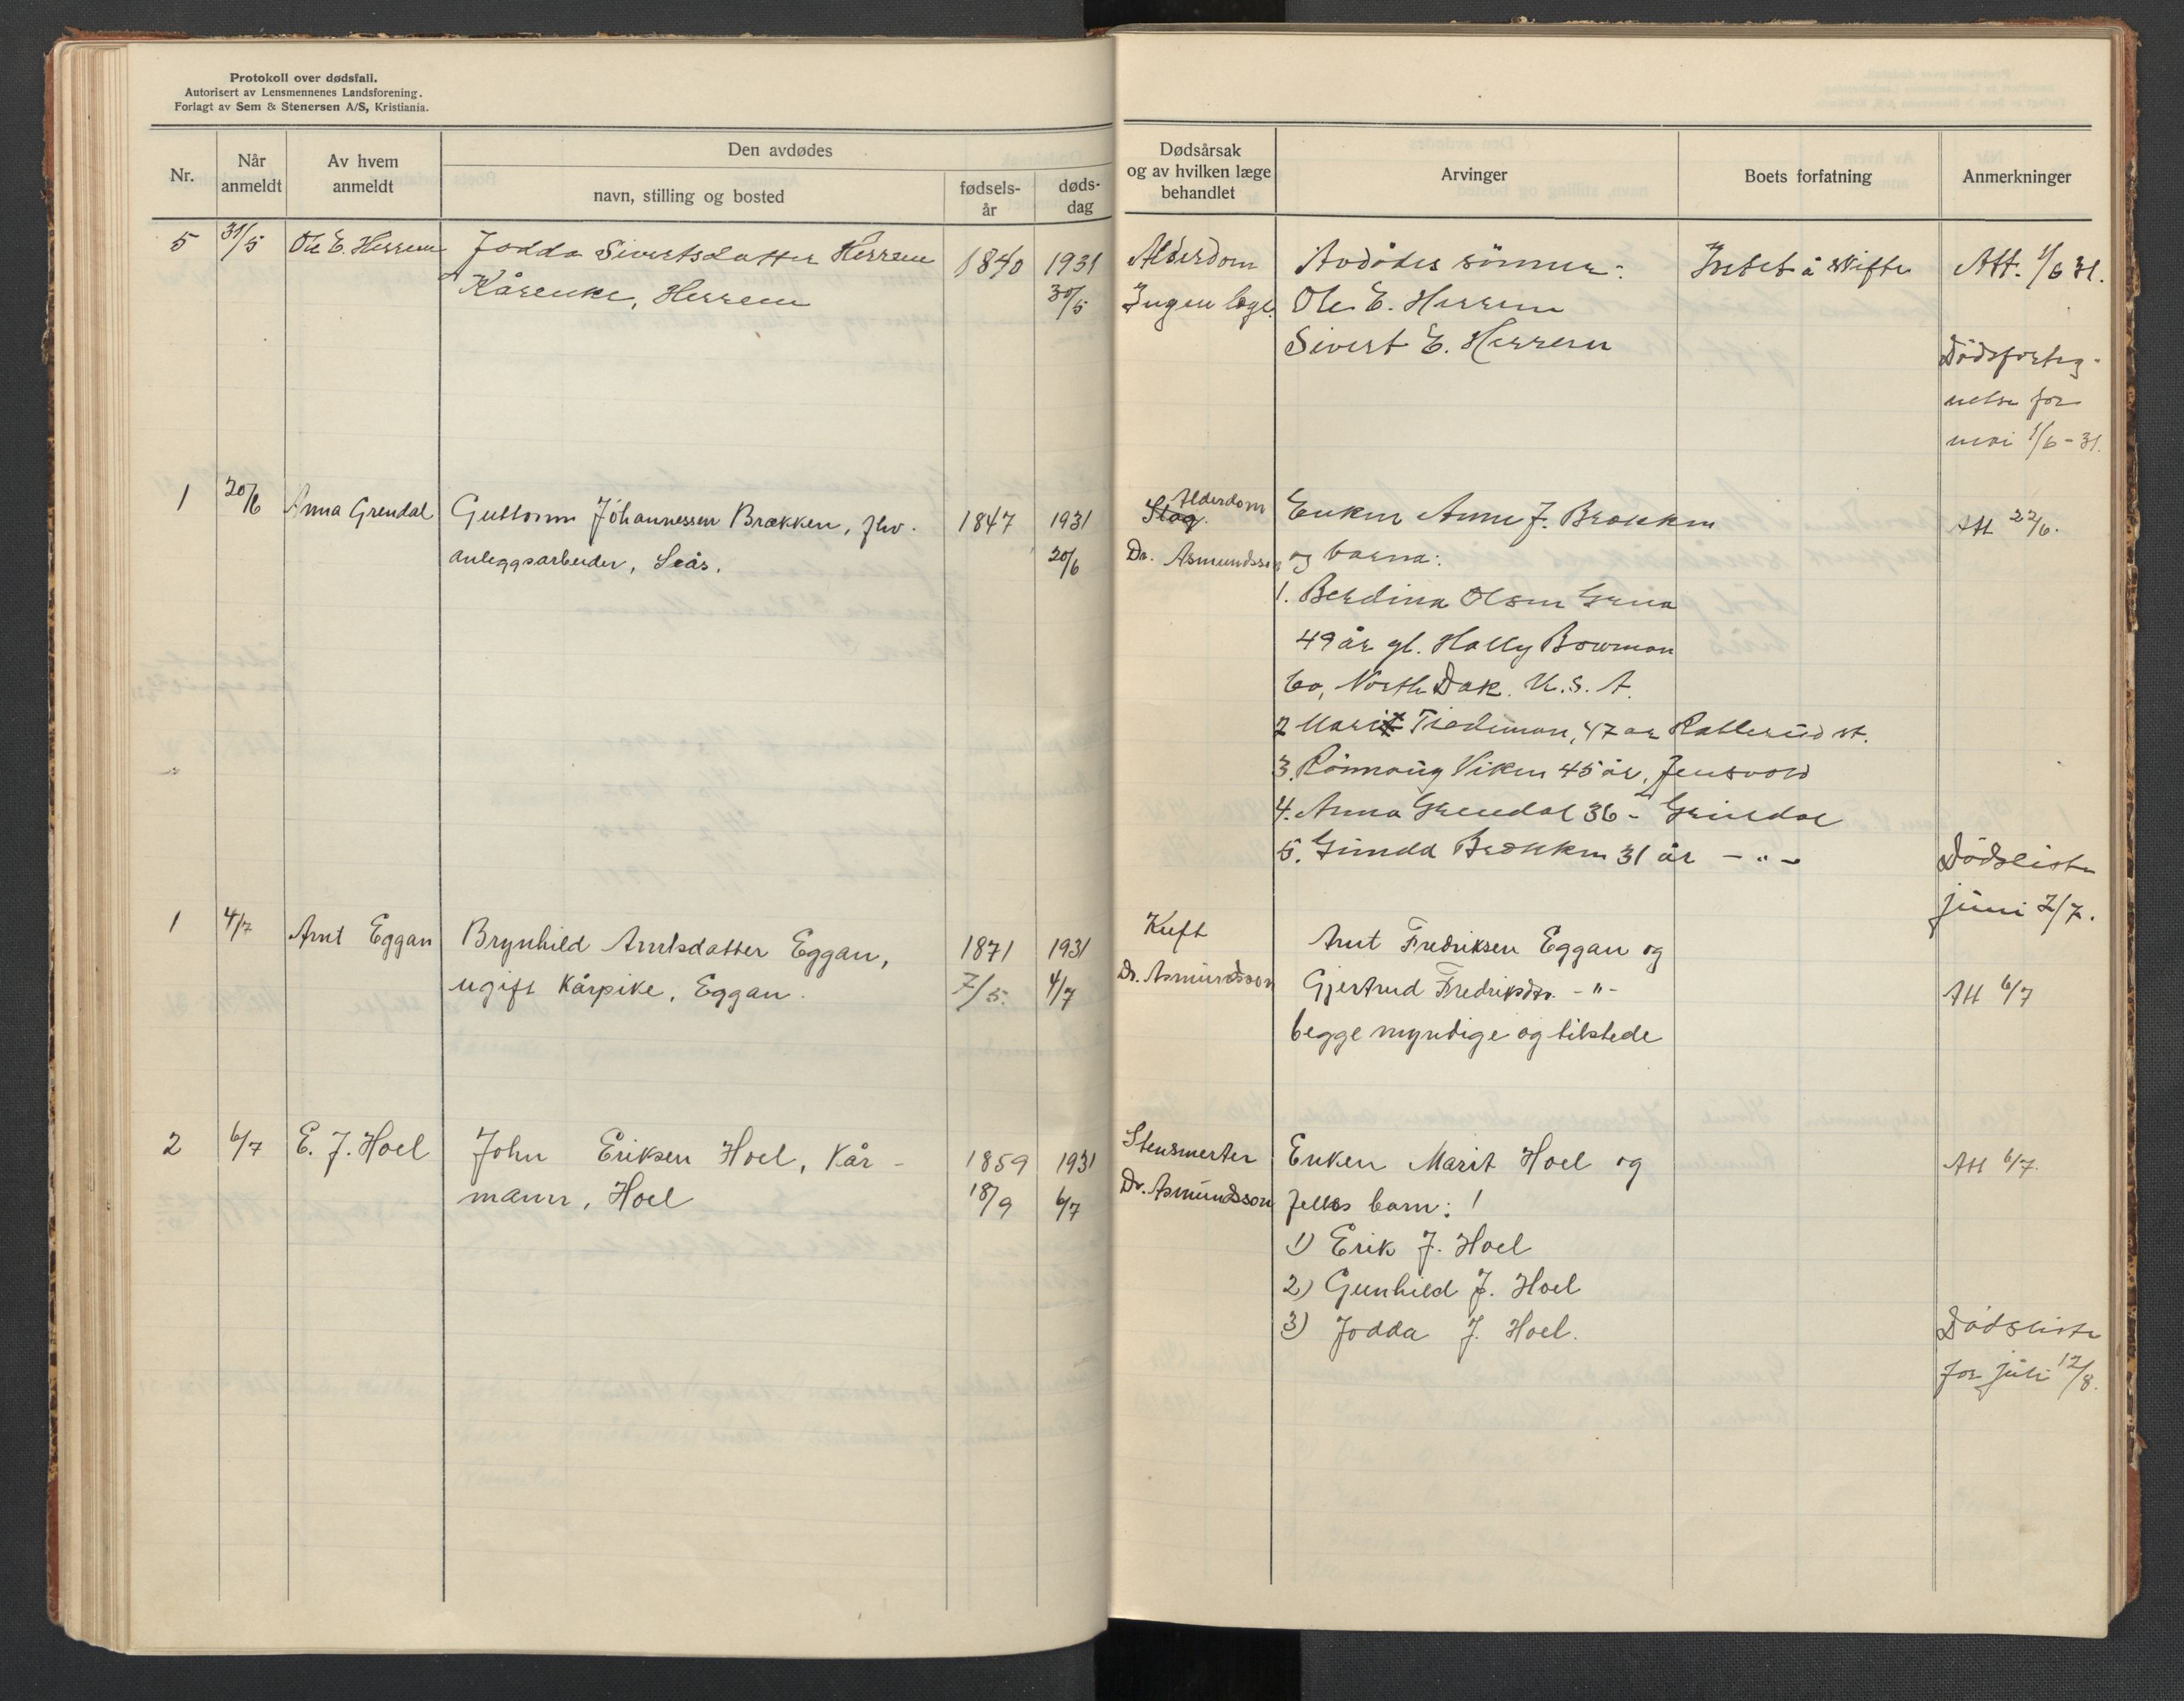 Protokoll over dødsfall.
Autorisert av Lensmennenes Landsforening.
Forlagt av Sem & Stenersen A/S, Kristiania.
Nr.
Når anmeldt
Av hvem anmeldt
Den avdødes
navn, stilling og bosted
fødselsår
dødsdag
Dødsårsak og av hvilken læge behandlet
Arvinger
Boets forfatning
Anmerkninger
5 31/5 Ole E. Herrem Jodda Sivertsdatter Herrem 1840 1931 Alderdom Avdødes sönner: Intet å skifte Att. 1/6 31.
Kårenke, Herrem 30/5 Ingen læge. Ole E. Herrem
Sivert E. Herrem
Dödsforteg-
nelse for
mai 1/6-31.
1 20/6 Anna Grendal Guttorm Johannessen Brækken, fhv. 1847 1931 Slag. Alderdom Enken Anne J. Brækken Att 22/6.
anleggsarbeider, Seås. 20/6 Dr. Asmundsson og barna:
1. Berdina Olsen
49 år gl. Bowman
Co, North Dak. U.S.A.
2 Marit 47 år
3. Rönnaug Viken 45 år, Jensvold
4. Anna Grendal 36 - Grindal
5. Gunda Brækken 31 år - " -
Dödsliste
juni 2/7.
1 4/7 Arnt Eggan Brynhild Arntsdatter Eggan, 1871 1931 Kreft Arnt Fredriksen Eggan og
ugift Kårpike, Eggan. 7/5. 4/7 Dr. Asmundsson Gjertrud Fredriksdtr. - " - Att 6/7
begge myndige og tilstede
2 6/7 E. J. Hoel John Eriksen Hoel, Kår- 1859 1931 Stensmerter Enken Marit Hoel og Att 6/7.
mann, Hoel 18/9 6/7 Dr. Asmundsson felles barn: !
1) Erik J. Hoel
2) Gunhild J. Hoel
3) Jodda J. Hoel.
Dödsliste
for juli 12/8.